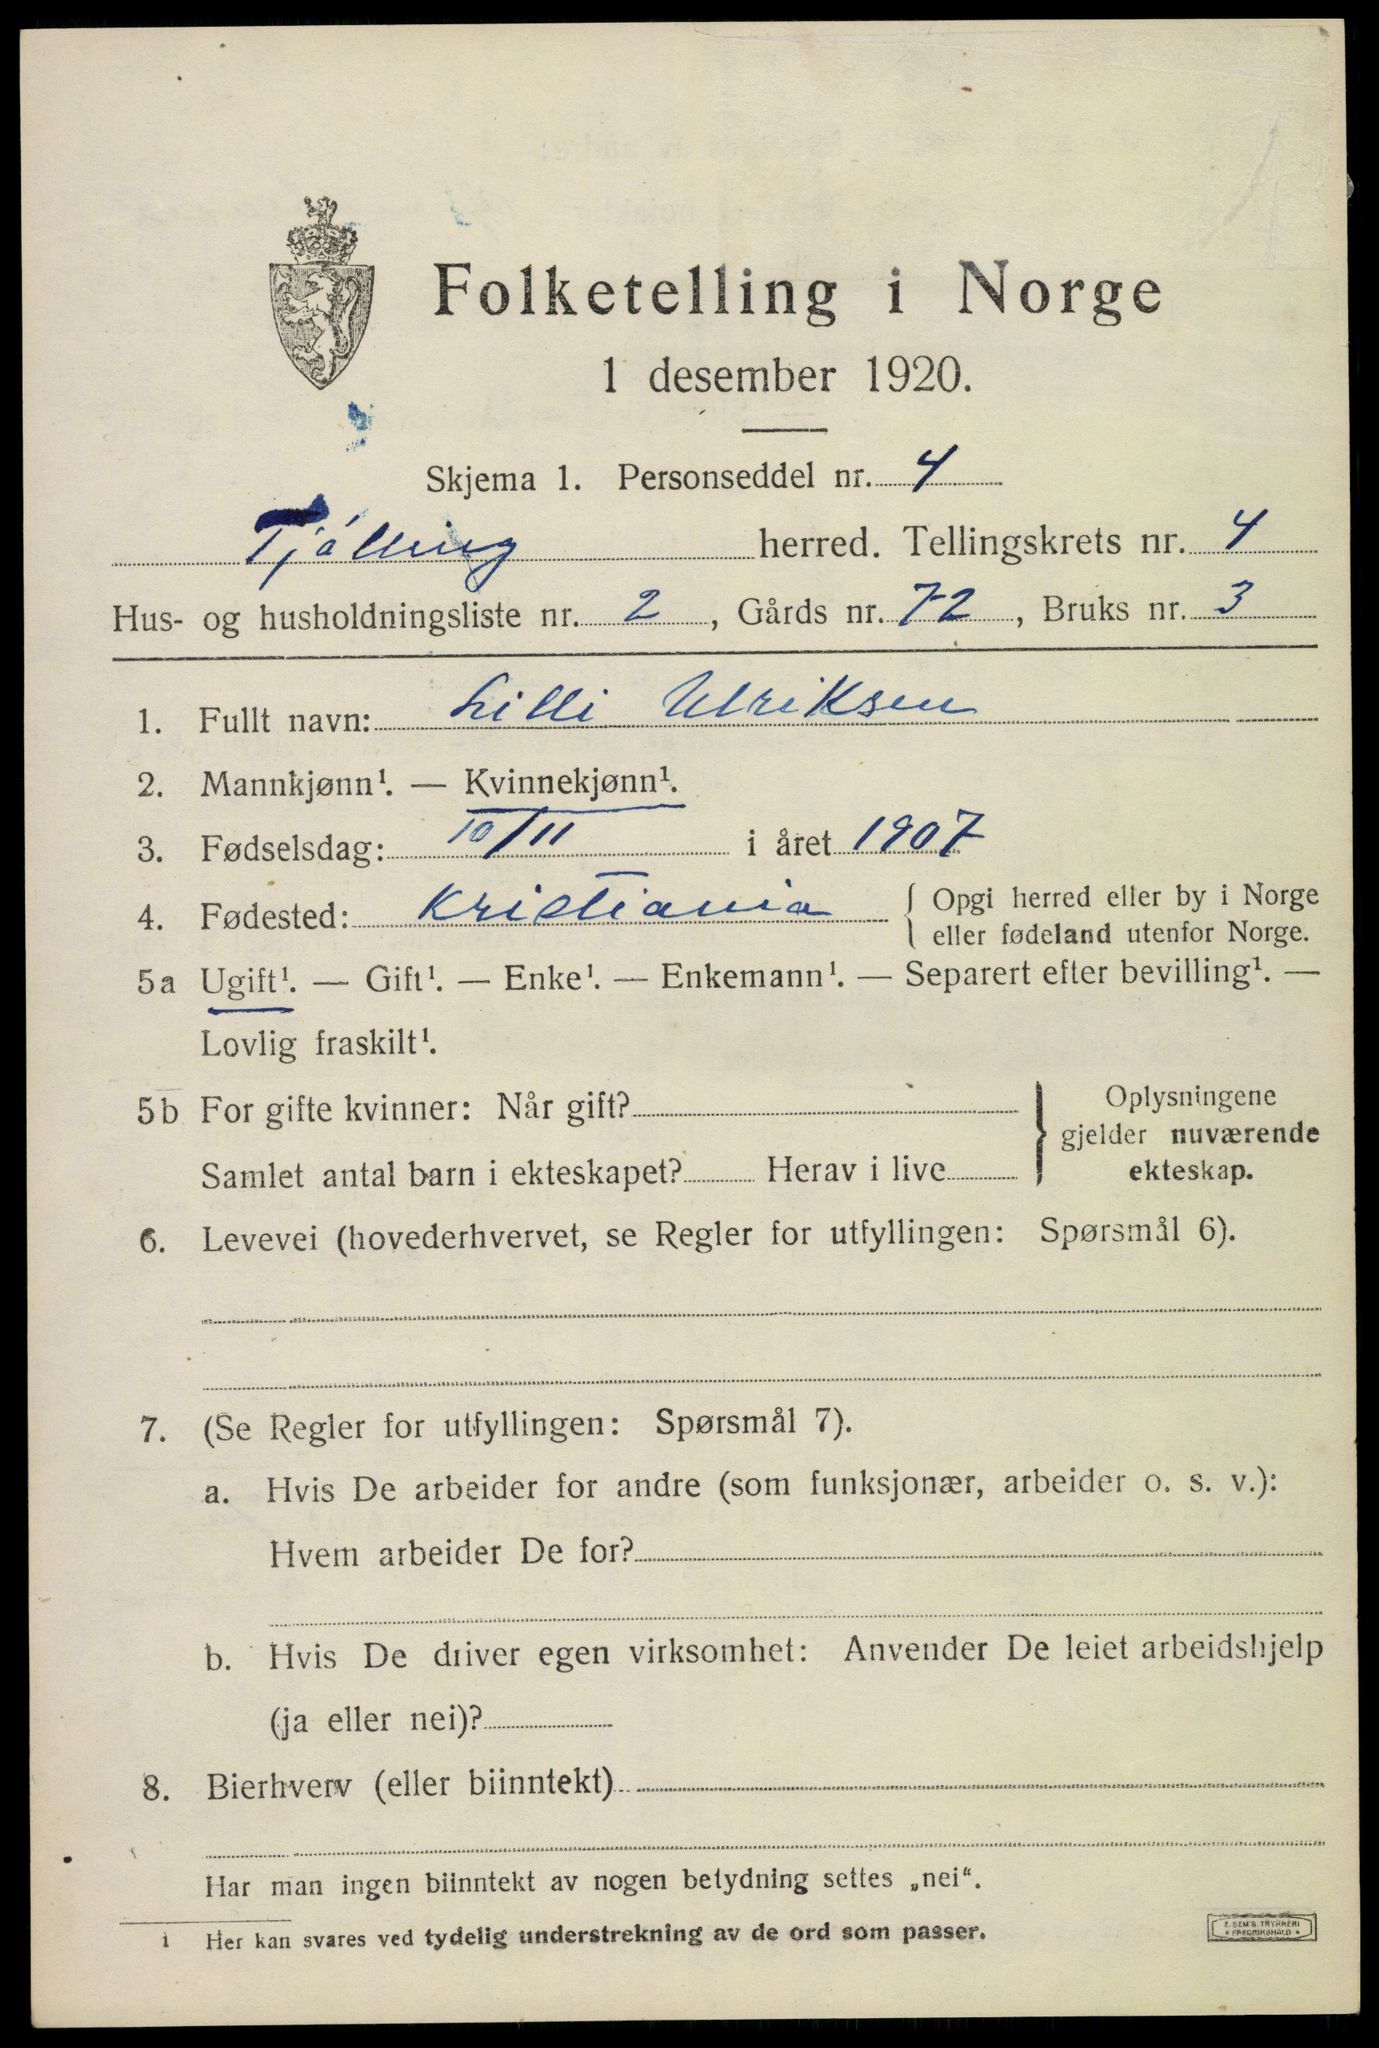 Folketelling i Norge
1 desember 1920.
Skjema 1. Personseddel nr. 4
Tjølling herred. Tellingskrets nr. 4
Hus- og husholdningsliste nr. 2, Gårds nr. 72, Bruks nr. 3
1. Fullt navn: Lilli Ulriksen
2. Mannkjønn¹. — Kvinnekjønn¹.
3. Fødselsdag: 10/11 i året 1907
4. Fødested: Kristiania { Opgi herred eller by i Norge
eller fødeland utenfor Norge.
5a Ugift¹. — Gift¹. — Enke¹. — Enkemann¹. — Separert efter bevilling¹. —
Lovlig fraskilt¹.
5b For gifte kvinner: Når gift?
Samlet antal barn i ekteskapet? Herav i live
} Oplysningene
gjelder nuværende
ekteskap.
6. Levevei (hovederhvervet, se Regler for utfyllingen: Spørsmål 6).
7. (Se Regler for utfyllingen: Spørsmål 7).
a. Hvis De arbeider for andre (som funksjonær, arbeider o. s. v.):
Hvem arbeider De for?
b. Hvis De driver egen virksomhet: Anvender De leiet arbeidshjelp
(ja eller nei)?
8. Bierhverv (eller biinntekt)
Har man ingen biinntekt av nogen betydning settes „nei“.
¹ Her kan svares ved tydelig understrekning av de ord som passer.
T. SEM'S TRYKKERI
* FREDRIKSHALD *